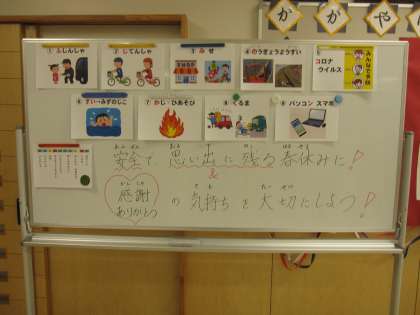 かがや
① ふしんしゃ
② じてんしゃ
③ みせ
④ のうぎょうようすい
⑤ コロナウイルス
みんなで予防
⑥ すい・みずのじこ
⑦ かじ・ひあそび
⑧ くるま
⑨ パソコン スマホ
安全で 思い出に残る 春休みに!
&
感謝
ありがとう
の 気持ち を 大切にしよう!